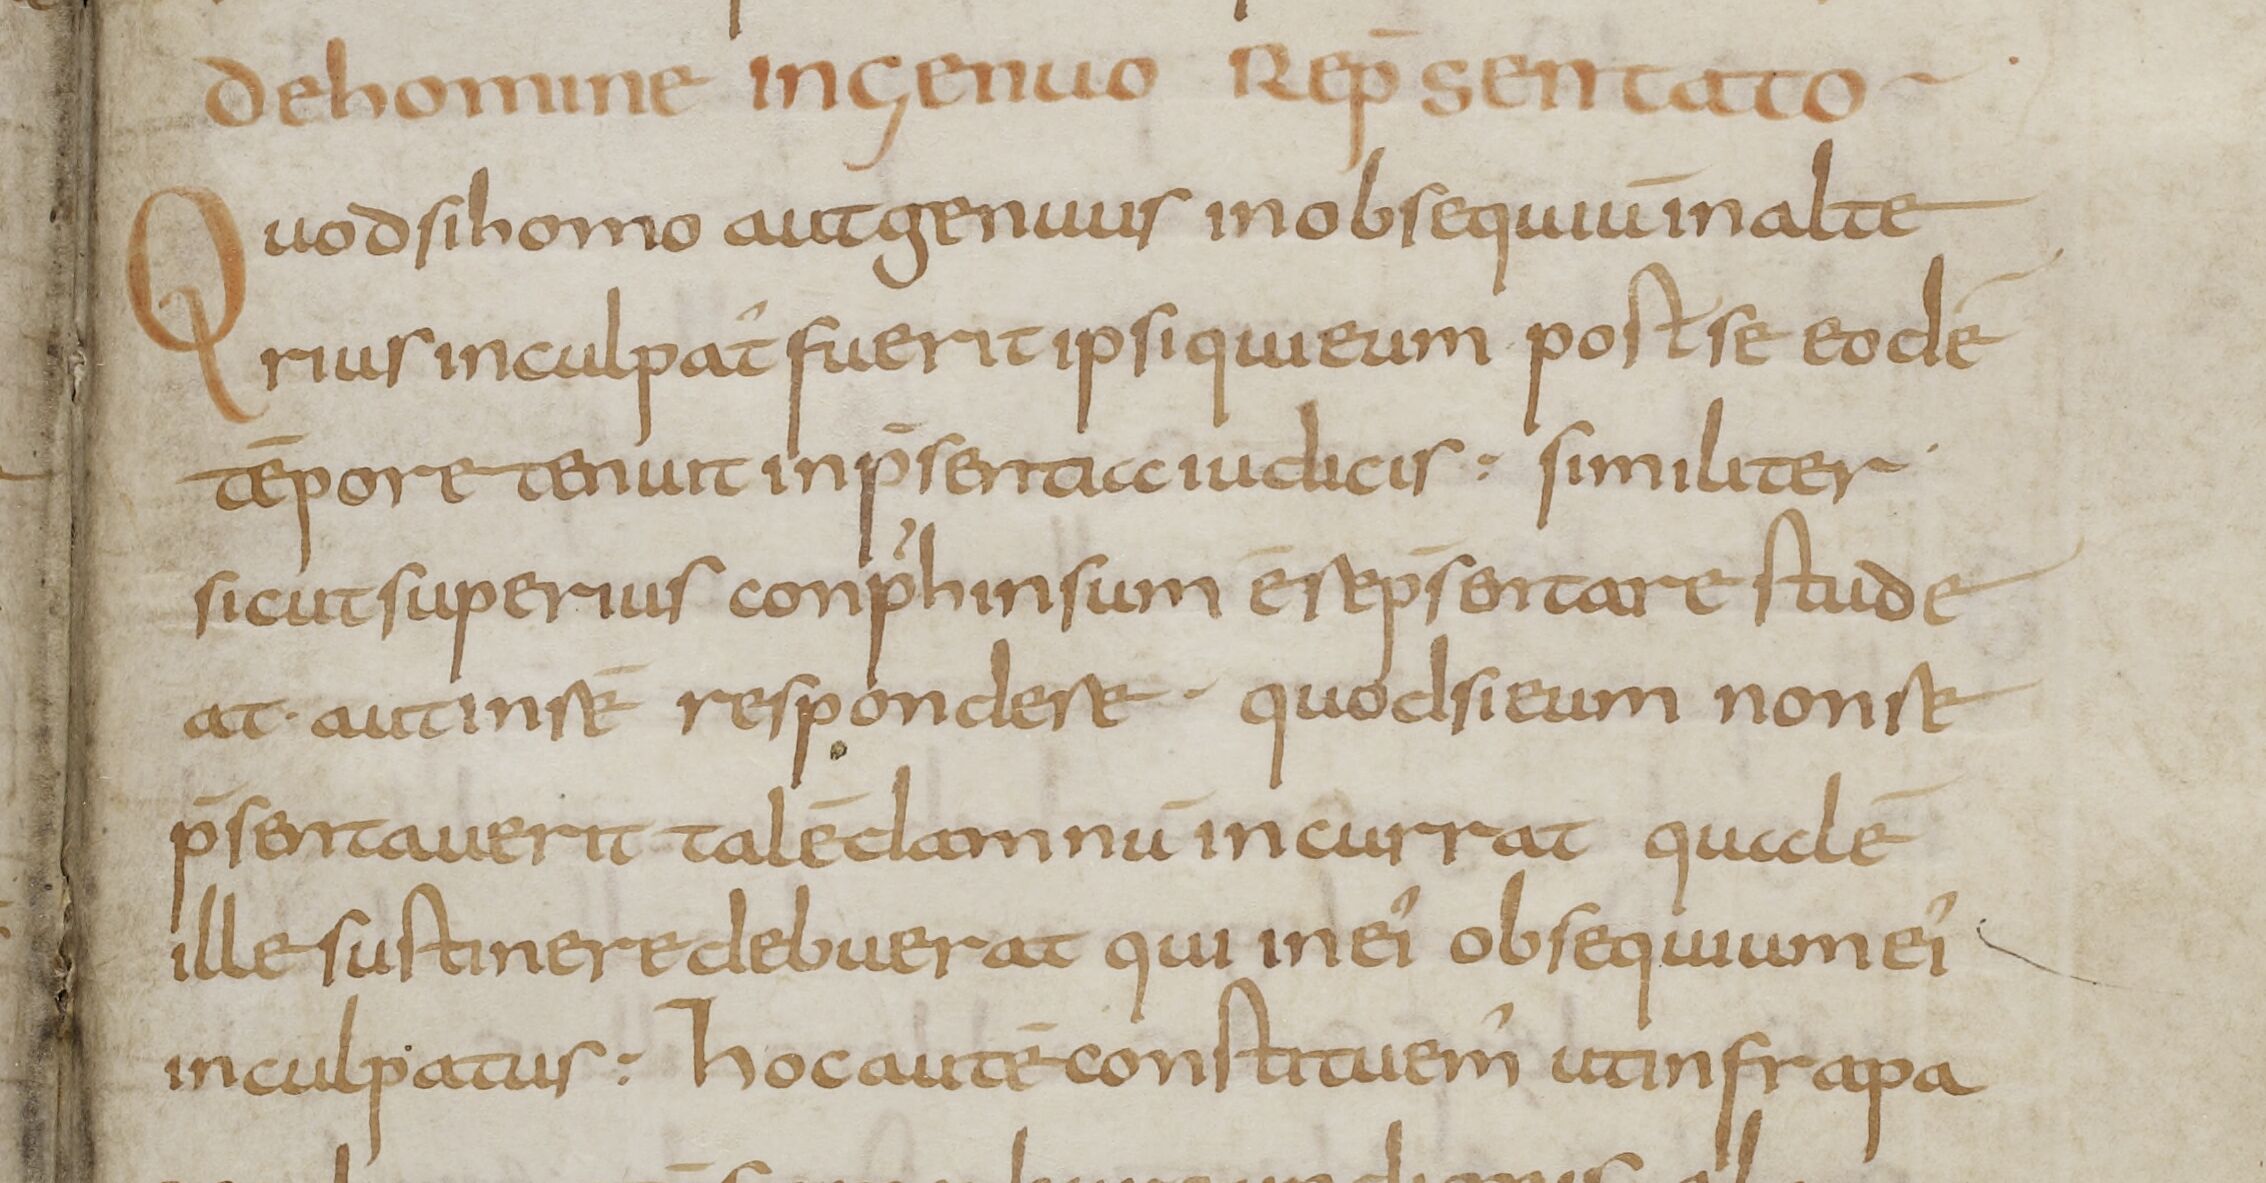 dehomine ingenuo rep̄sentato
Quodsihomo autgenuus inobsequiū inalte
rius inculpat᾽ fuerit ipsi quieum post se eodē
tēpore tenuit inp̄sentia iudicis : similiter
sicut superius conp᾽hinsum ē rep̄sentare stude
at · aut in rē respondere · quodsieum non re
p̄sentauerit talē damnū incurrat qualē
ille sustinere debuerat qui in ei᾽ obsequium ei᾽
inculpatus : hoc autē constituem᾽ ut infra pa